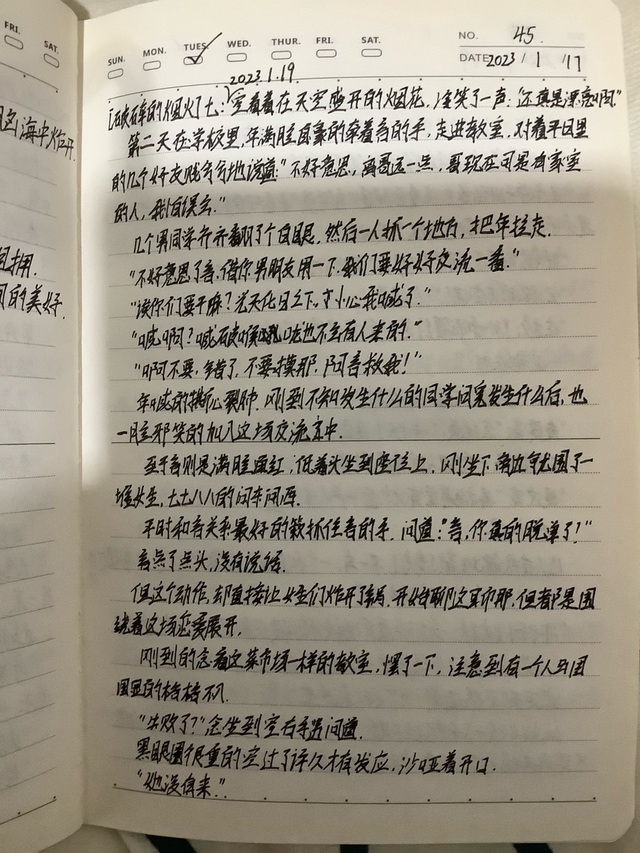 FRI. SAT.
SUN. MON. TUES. WED. THUR. FRI. SAT.
NO. 45.
DATE 2023 / 1 / 17
2023.1.19
的烟火】七：空看着在天空盛开的烟花，冷笑了一声：“还真是漂亮啊。”
第二天在学校里，年满脸的牵着吾的手，走进教室，对着平日里
的几个好友贱兮兮地说道：“不好意思，离哥远一点，哥现在可是有家室
的人，我怕误会。”
几个男同学齐齐翻了个白眼，然后一人抓一个地方，把年拉走。
“不好意思了吾，借你男朋友用一下，我们要好好交流一番。”
“诶你们要干嘛？光天化日之下，小心我喊了。”
“喊啊？喊破喉咙也不会有人来的。”
“啊不要，错了，不要摸那，阿吾救我！”
年喊的撕心裂肺，刚到不知发生什么的同学问完发生什么后，也
一脸邪笑的加入这场交流之中。
至于吾则是满脸通红，低着头坐到座位上，刚坐下，旁边就围了一
堆女生，七七八八的问东问西。
平时和吾关系最好的抓住吾的手，问道：“吾，你真的脱单了？”
吾点了点头，没有说话。
但这个动作，却直接让女生们炸开了锅，开始聊这聊那，但都是围
绕着这场恋爱展开。
刚到的念看这菜市场一样的教室，愣了一下，注意到有一个人与周
围显的格格不入。
“失败了？”念坐到空右手边问道。
黑眼圈很重的空过了许久才有反应，沙哑着开口。
“他没有来。”
海中炸开
相拥.
的美好.